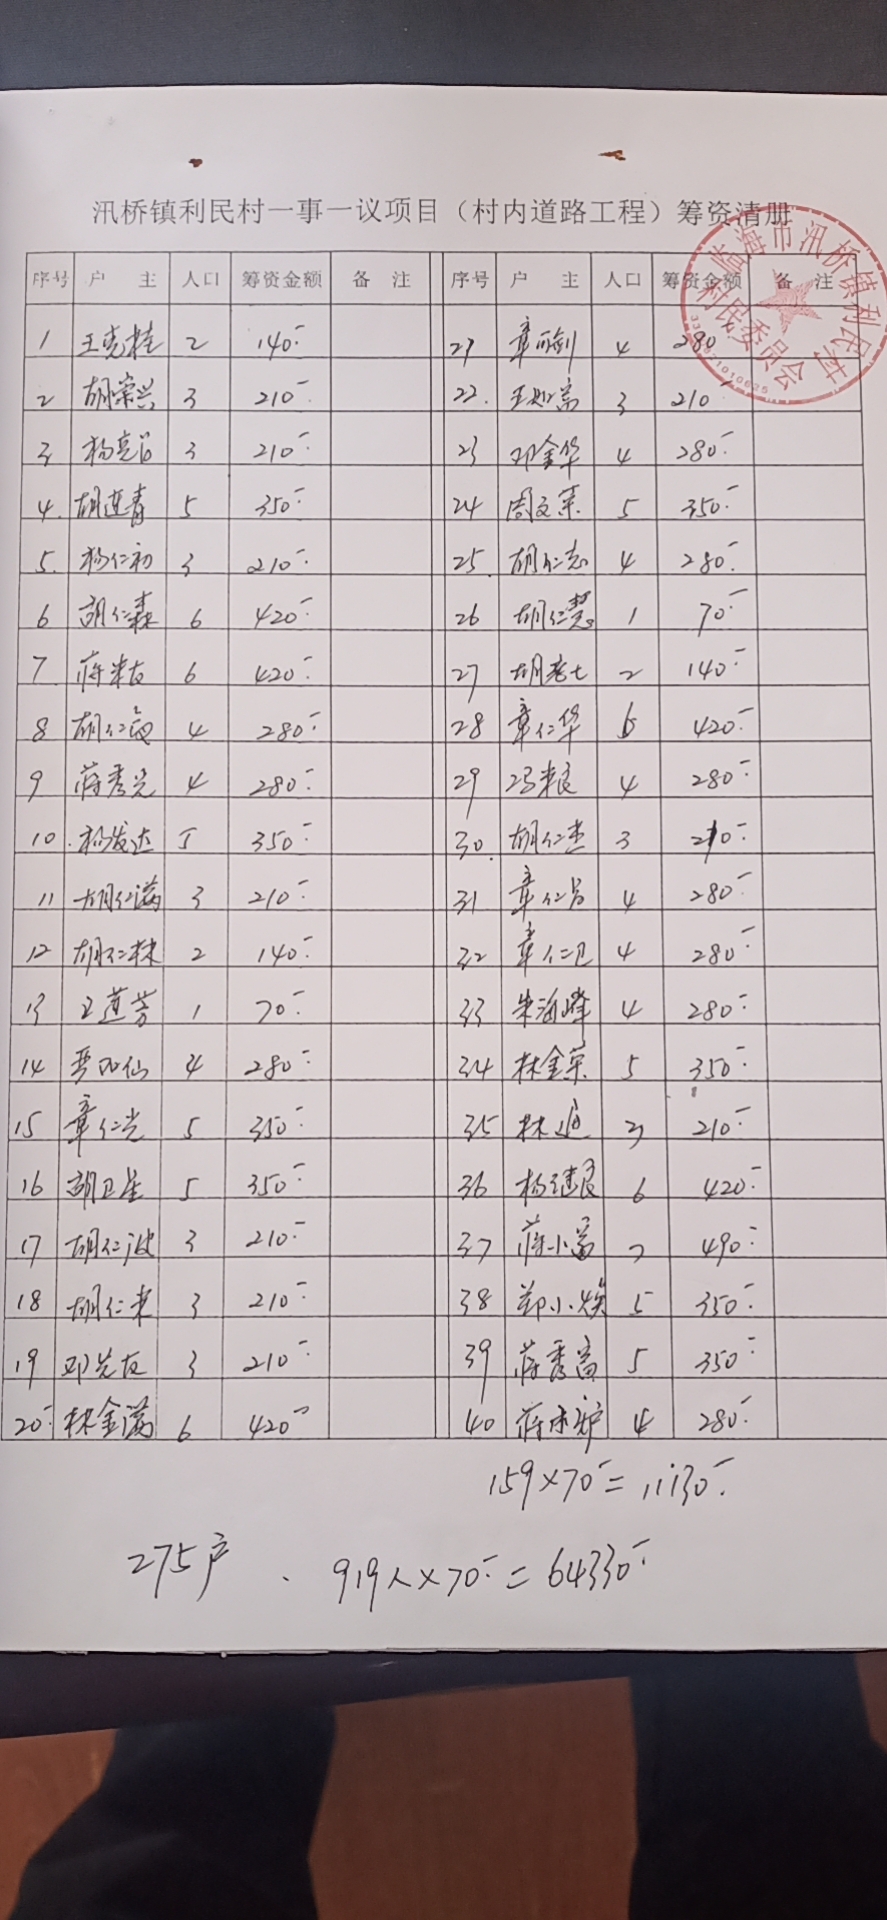 汛桥镇利民村一事一议项目（村内道路工程）筹资清册
临海市汛桥镇利民村村民委员会
序号 户 主 人口 筹资金额 备 注 序号 户 主 人口 筹资金额 备 注
1 王克桂 2 140 21 章 4 280
2 胡崇兴 3 210 22. 王 3 210
3 杨 3 210 23 邓金华 4 280
4. 胡莲青 5 350 24 周文 5 350
5. 杨仁初 3 210 25. 胡仁志 4 280
6 胡仁森 6 420 26 胡仁慧 1 70
7 蒋米友 6 420 27 胡老七 2 140
8 胡仁 4 280 28 章仁华 6 420
9 蒋秀光 4 280 29 冯米良 4 280
10. 杨发达 5 350 30. 胡仁杰 3 210
11 胡仁满 3 210 31 章仁 4 280
12 胡仁林 2 140 32 章仁卫 4 280
13 王莲芳 1 70 33 朱海峰 4 280
14 仙 4 280 34 林金荣 5 350
15 章仁光 5 350 35 林通 3 210
16 胡卫星 5 350 36 杨继良 6 420
17 胡仁波 3 210 37 蒋小富 7 490
18 胡仁来 3 210 38 郑小焕 5 350
19 邓先友 3 210 39 蒋秀高 5 350
20 林金满 6 420 40 蒋米炉 4 280
159×70=11130
275户 、 919人×70=64330